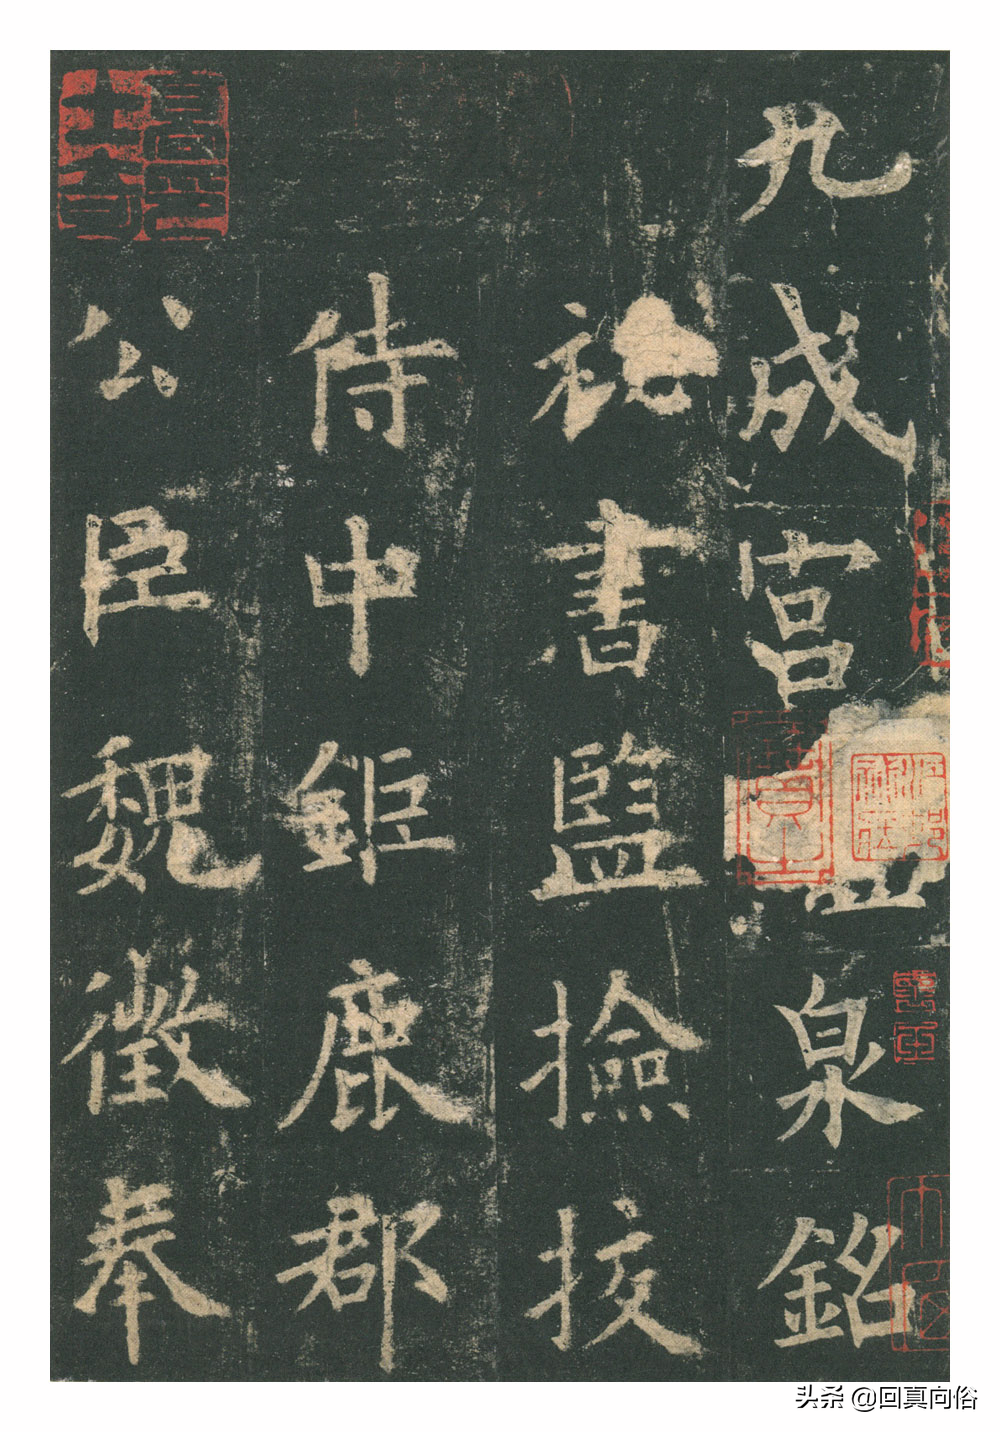 九成宮泉銘
祕書監撿挍
侍中鉅鹿郡
公臣魏徵奉
头条 @回真向俗